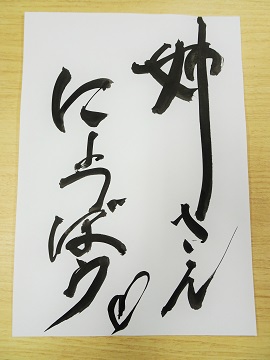 姉さん
にょうぼう♡